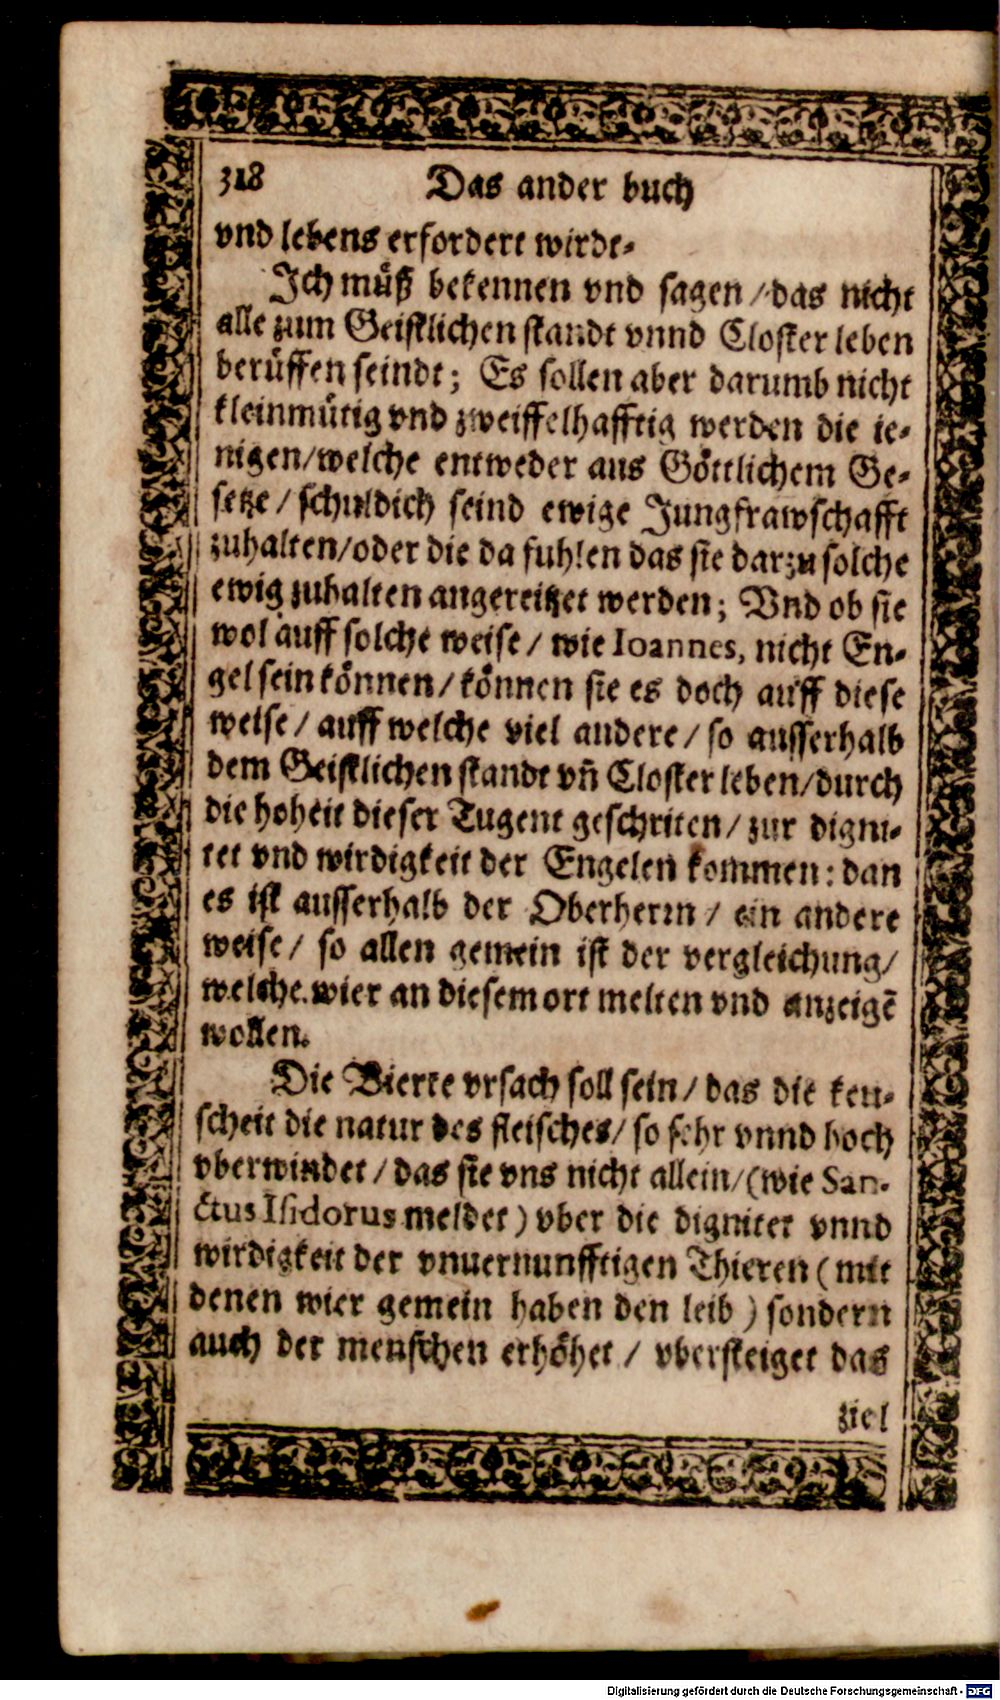 318 Das ander buch
vnd lebens erfordert wirdt.
Ich müß bekennen vnd sagen / das nicht
alle zum Geistlichen standt vnnd Closter leben
berüffen seindt; Es sollen aber darumb nicht
kleinmütig vnd zweiffelhafftig werden die ie-
nigen / welche entweder aus Göttlichem Ge-
setze / schuldich seind ewige Jungfrawschafft
zuhalten / oder die da fuhlen das sie darzu solche
ewig zuhalten angereitzet werden; Vnd ob sie
wol auff solche weise / wie Ioannes, nicht En-
gel sein können / können sie es doch auff diese
weise / auff welche viel andere / so ausserhalb
dem Geistlichen standt vñ Closter leben / durch
die hoheit dieser Tugent geschriten / zur digni-
tet vnd wirdigkeit der Engelen kommen: dan
es ist ausserhalb der Oberherin / ein andere
weise / so allen gemein ist der vergleichung /
welche wier an diesem ort melten vnd anzeigē
wollen.
Die Vierte vrsach soll sein / das die keu-
scheit die natur des fleisches / so sehr vnnd hoch
vberwindet / das sie vns nicht allein / (wie San-
ctus Isidorus meldet) vber die dignitet vnnd
wirdigkeit der vnuernunfftigen Thieren (mit
denen wier gemein haben den leib) sondern
auch der menschen erhöhet / vbersteiget das
ziel
Digitalisierung gefördert durch die Deutsche Forschungsgemeinschaft - DFG